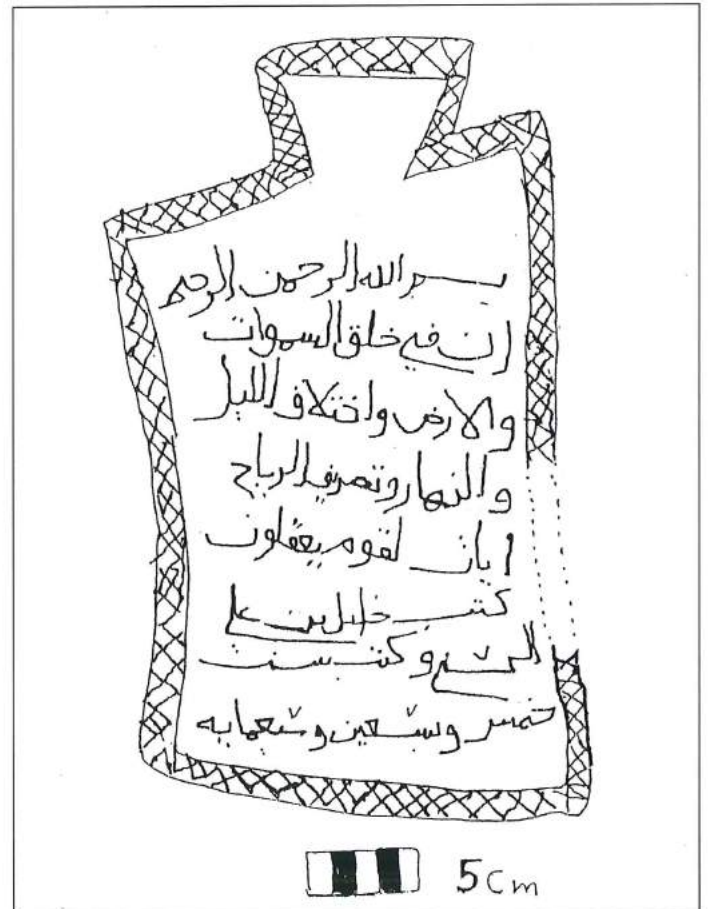 بسم الله الرحمن الرحيم
ان في خلق السموات
والارض واختلاف الليل
والنهار وتصريف الرياح
ايات لقوم يعقلون
كتب خليل بن علي
وكتب سنت
خمس وسبعين وسبعمايه
5 cm